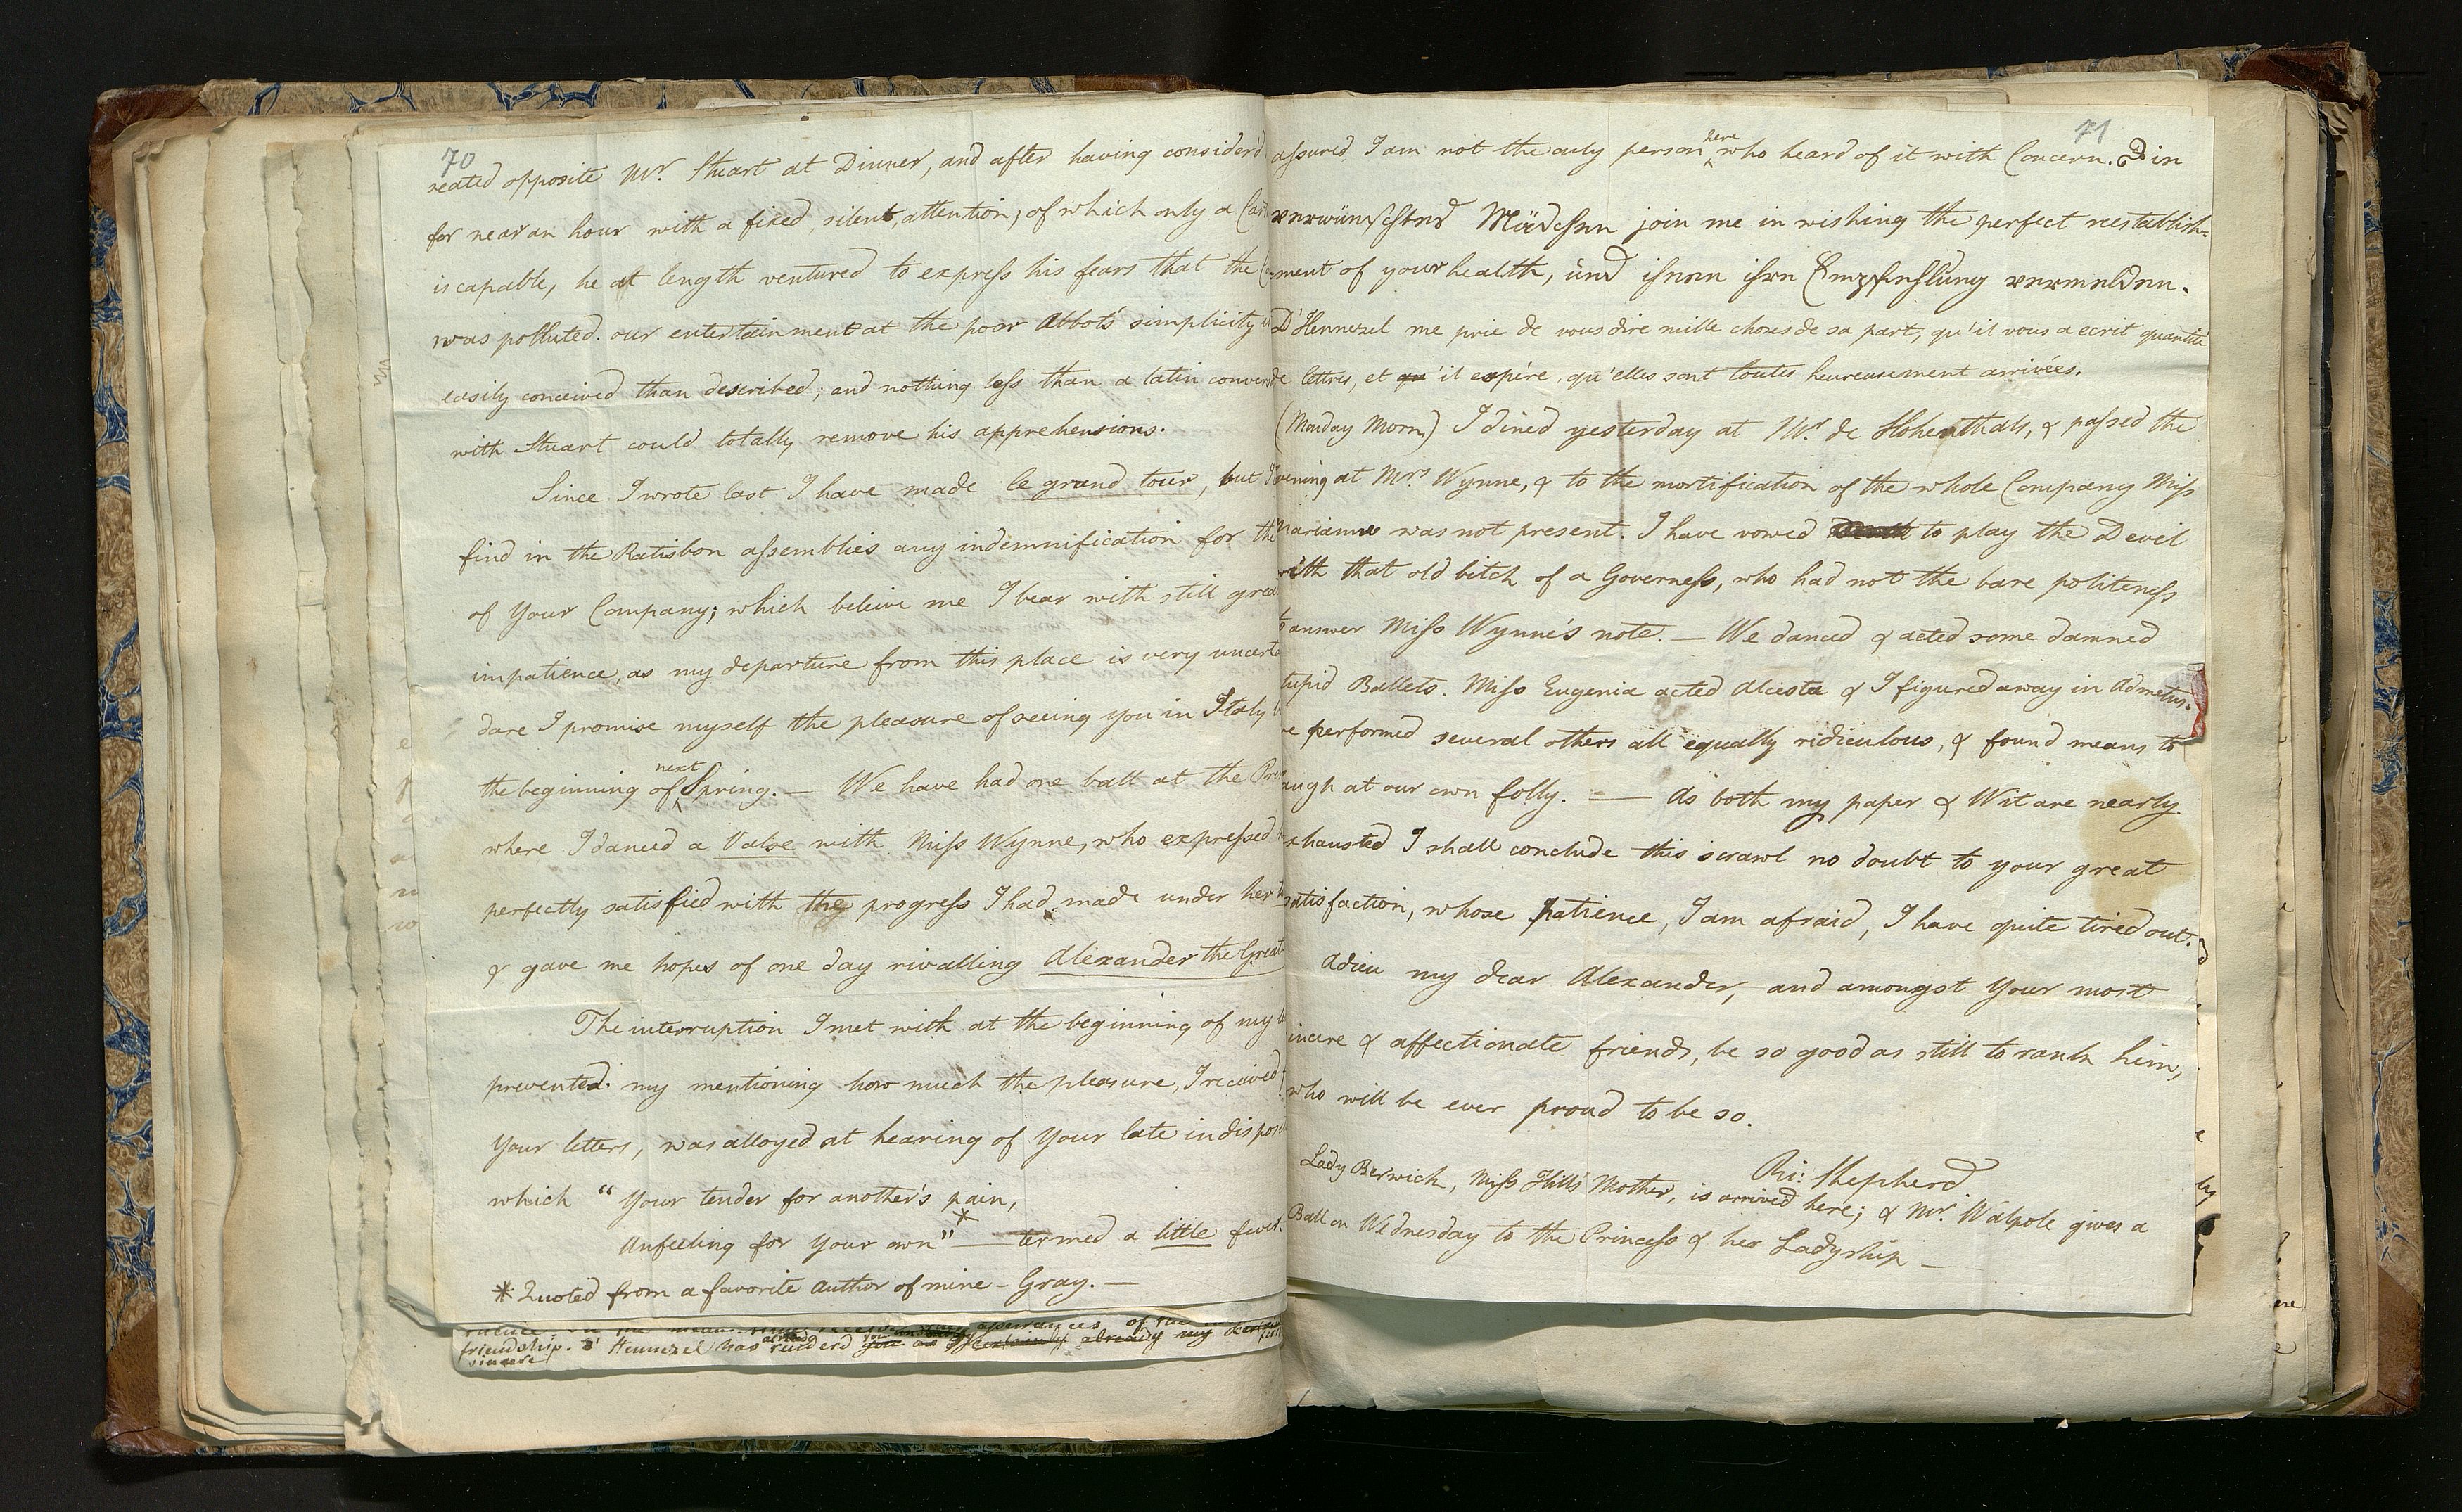 70
seated opposite Mr. Stuart at Dinner, and after having consider'd
for near an hour with a fixed, silent, attention, of which only a
is capable, he at length ventured to express his fears that the
was polluted. our entertainment at the poor Abbot's simplicity is
easily conceived than described; and nothing less than a latin
with Stuart could totally remove his apprehensions.
Since I wrote last I have made le grand tour, but
find in the Ratisbon assemblies any indemnification for the
of Your Company; which beleive me I bear with still
impatience, as my departure from this place is very
dare I promise myself the pleasure of seeing you in Italy
the beginning of next Spring. — We have had one ball at the
where I danced a Valse with Miss Wynne, who expressed
perfectly satisfied with the progress I had made under her
& gave me hopes of one day rivalling Alexander the Great
The interruption I met with at the beginning of my
prevented my mentioning how much the pleasure, I received
Your letters, was alloyed at hearing of Your late
which "Your tender for another's pain,
Unfeeling for Your own" * — termed a little fever.
* Quoted from a favorite Author of mine — Gray. —
friendship. D'Hennezel has already
sincere
71
assured I am not the only person here who heard of it with Concern. Die in
verwünschten Mädchen join me in wishing the perfect reestablish-
ment of your health, und ihnen ihre Empfehlung vermelden.
D'Hennezel me prie de vous dire mille choses de sa part, qu'il vous a ecrit quantité
de lettres, et qu'il espére, qu'elles sont toutes heureusement arrivées.
(Monday Morn.) I dined yesterday at Mr. de Hohenthals, & passed the
evening at Mrs. Wynne, & to the mortification of the whole Company Miss
Marianne was not present. I have vowed to play the Devil
with that old bitch of a Governess, who had not the bare politeness
to answer Miss Wynne's note. — We danced & acted some damned
stupid Ballets. Miss Eugenia acted Alceste & I figured away in Admetus.
we performed several others all equally ridiculous, & found means to
laugh at our own folly. — As both my paper & Wit are nearly
exhausted I shall conclude this scrawl no doubt to your great
satisfaction, whose patience, I am afraid, I have quite tired out.
Adieu my dear Alexander, and amongst Your most
sincere & affectionate friends, be so good as still to rank him,
who will be ever proud to be so.
Ri: Shepherd
Lady Berwick, Miss Hill's Mother, is arrived here; & Mr. Walpole gives a
Ball on Wednesday to the Princess & her Ladyship —